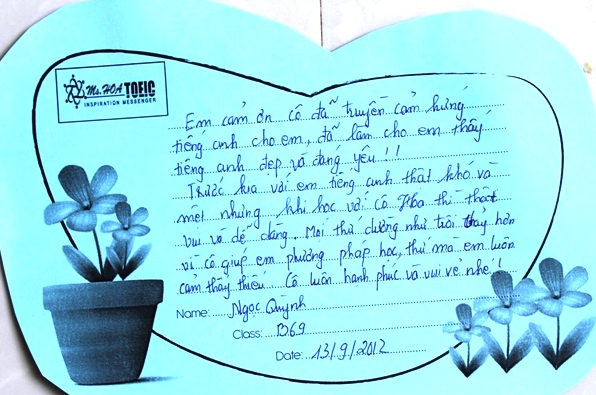 Ms. HOA TOEIC
INSPIRATION MESSENGER
Em cảm ơn cô đã truyền cảm hứng
tiếng anh cho em, đã làm cho em thấy
tiếng anh đẹp và đáng yêu!!
Trước kia với em tiếng anh thật khó và
mệt nhưng khi học với cô Hoa thì thật
vui và dễ dàng. Mọi thứ dường như trôi chảy hơn
vì cô giúp em phương pháp học, thứ mà em luôn
cảm thấy thiếu. Cô luôn hạnh phúc và vui vẻ nhé!
Name: Ngọc Quỳnh
Class: B69
Date: 13/9/2012